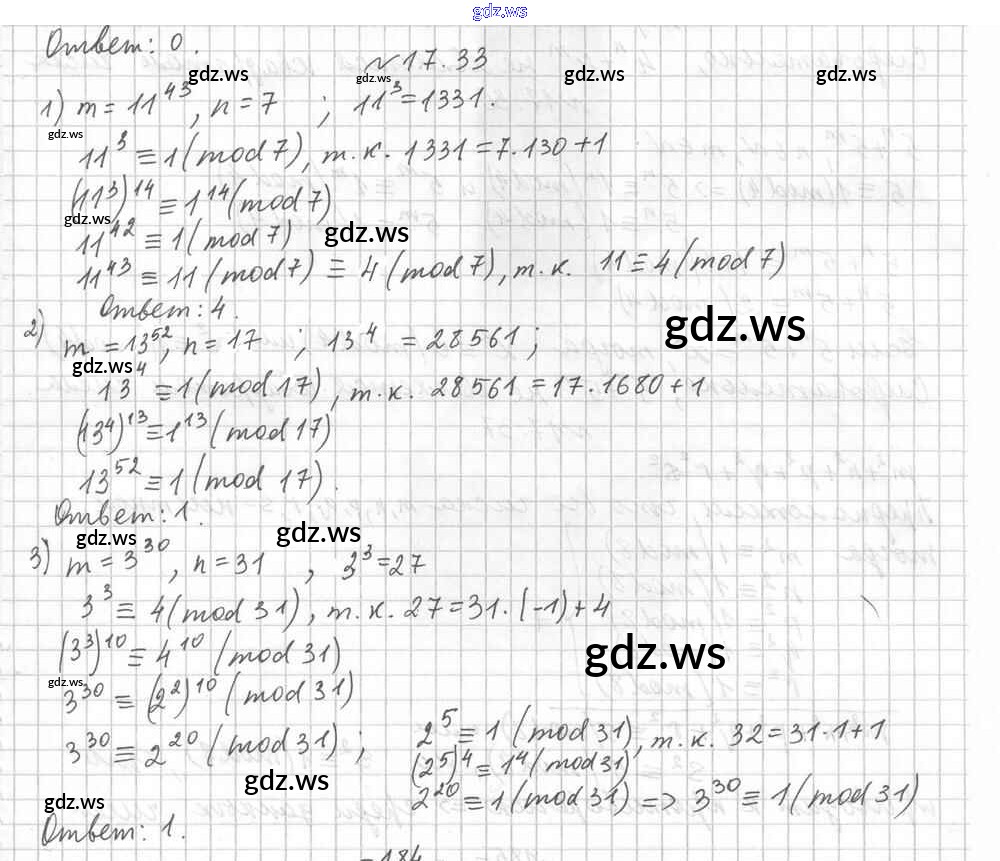 gdz.ws
Ответ: 0.
№17.33
gdz.ws gdz.ws gdz.ws gdz.ws
1) m = 11^43, n = 7 ; 11^3 = 1331.
gdz.ws
11^3 ≡ 1 (mod 7), т.к. 1331 = 7·130 + 1
(11^3)^14 ≡ 1^14 (mod 7)
gdz.ws
11^42 ≡ 1 (mod 7)
gdz.ws
11^43 ≡ 11 (mod 7) ≡ 4 (mod 7), т.к. 11 ≡ 4 (mod 7)
Ответ: 4.
2) m = 13^52, n = 17 ; 13^4 = 28561 ;
gdz.ws
gdz.ws
13^4 ≡ 1 (mod 17), т.к. 28561 = 17·1680 + 1
(13^4)^13 ≡ 1^13 (mod 17)
13^52 ≡ 1 (mod 17).
Ответ: 1.
gdz.ws gdz.ws
3) m = 3^30, n = 31 , 3^3 = 27
3^3 ≡ 4 (mod 31), т.к. 27 = 31·(-1) + 4
(3^3)^10 ≡ 4^10 (mod 31)
gdz.ws
gdz.ws
3^30 ≡ (2^2)^10 (mod 31)
3^30 ≡ 2^20 (mod 31) ; 2^5 ≡ 1 (mod 31), т.к. 32 = 31·1 + 1
(2^5)^4 ≡ 1^4 (mod 31)
gdz.ws
2^20 ≡ 1 (mod 31) => 3^30 ≡ 1 (mod 31)
gdz.ws
Ответ: 1.